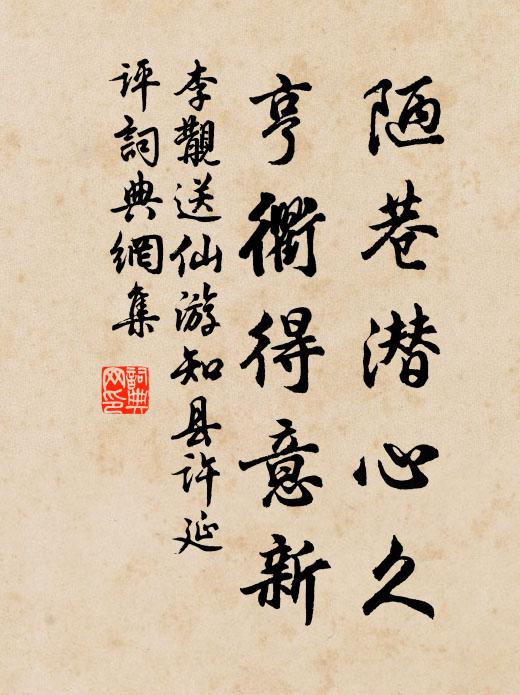 陋巷潜心久
亨衢得意新
李觏送仙游知县许延
评词典網集
詞典網印